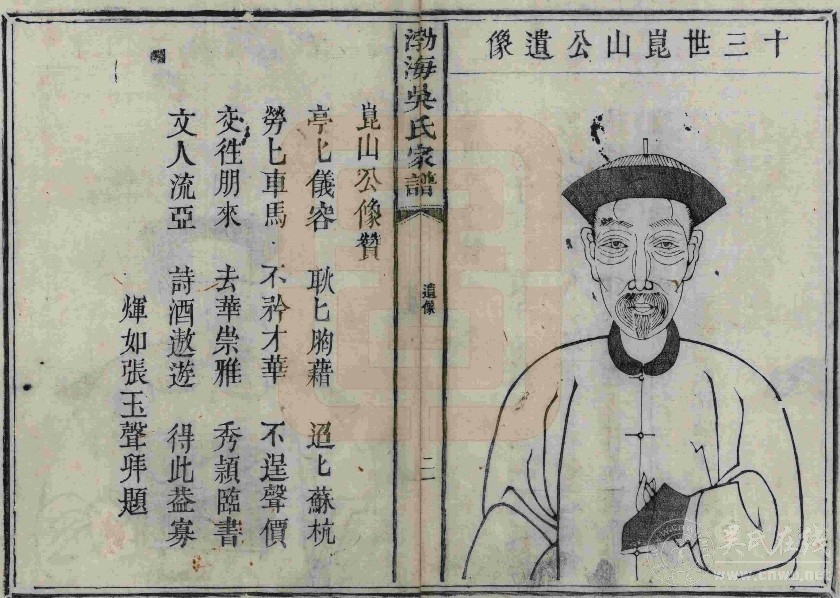 十三世崑山公遺像
渤海吳氏家譜
遺像
二
崑山公像贊
亭匕儀容 耿匕胸藉 迢匕蘇杭
勞匕車馬 不矜才華 不逞聲價
交徃朋來 去華崇雅 秀穎臨書
文人流亞 詩酒遨遊 得此葢寡
煇如張玉聲拜題
吳氏在线
www.cnwu.net